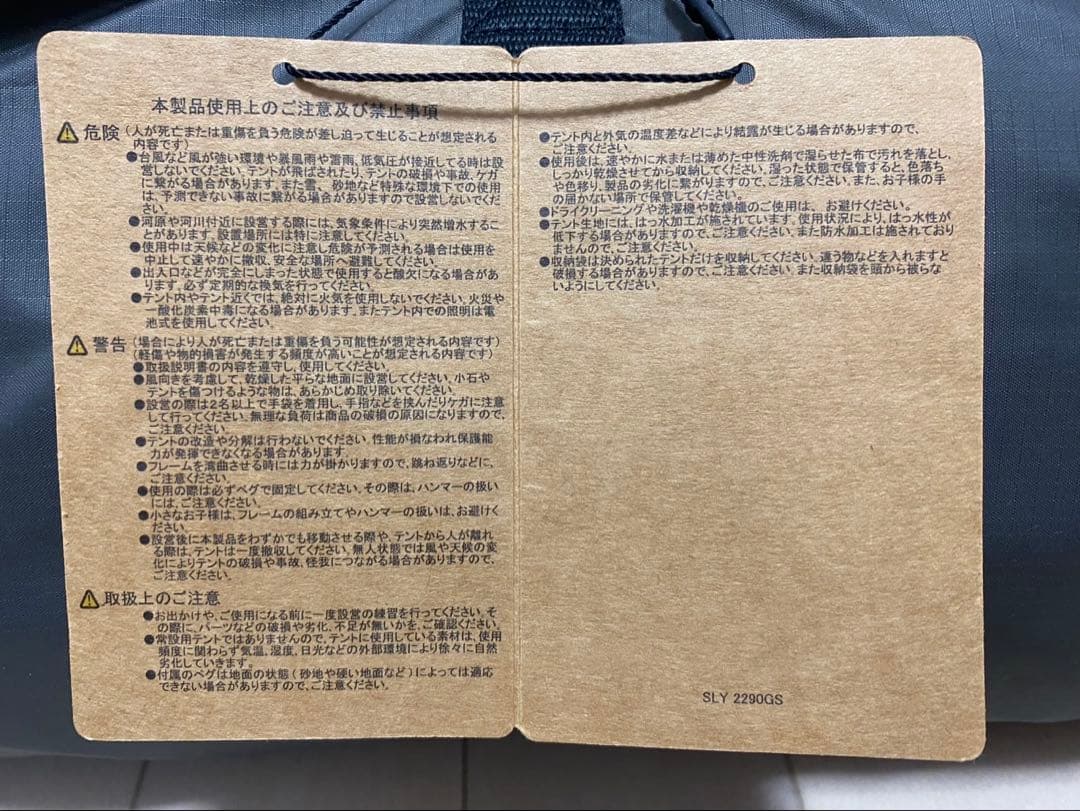 本製品使用上のご注意及び禁止事項
危険(人が死亡または重傷を負う危険が差し迫って生じることが想定される
内容です)
●台風など風が強い環境や暴風雨や雷雨、低気圧が接近してる時は設
営しないでください。テントが飛ばされたり、テントの破損や事故、ケガ
に繋がる場合があります。また雪、砂地など特殊な環境下での使用
は、予測できない事故に繋がる場合がありますので設営しないでくだ
さい。
●河原や河川付近に設営する際には、気象条件により突然増水するこ
とがあります。設置場所には特に注意してください
●使用中は天候などの変化に注意し危険が予測される場合は使用を
中止して速やかに撤収、安全な場所へ避難してください。
●出入口などが完全にしまった状態で使用すると酸欠になる場合があ
ります。必ず定期的な換気を行ってください。
●テント内やテント近くでは、絶対に火気を使用しないでください。火災や
一酸化炭素中毒になる場合があります。またテント内での照明は電
池式を使用してください。
警告(場合により人が死亡または重傷を負う可能性が想定される内容です)
(軽傷や物的損害が発生する頻度が高いことが想定される内容です)
●取扱説明書の内容を遵守し、使用してください。
●風向きを考慮して、乾燥した平らな地面に設営してください。小石や
テントを傷つけるような物は、あらかじめ取り除いてください。
●設営の際は2名以上で手袋を着用し、手指などを挟んだりケガに注意
して行ってください。無理な負荷は商品の破損の原因になりますので、
ご注意ください。
●テントの改造や分解は行わないでください。性能が損なわれ保護能
力が発揮できなくなる場合があります。
●フレームを湾曲させる時には力が掛かりますので、跳ね返りなどに、
ご注意ください。
●使用の際は必ずペグで固定してください。その際は、ハンマーの扱い
には、ご注意ください。
●小さなお子様は、フレームの組み立てやハンマーの扱いは、お避けく
ださい。
●設営後に本製品をわずかでも移動させる際や、テントから人が離れ
る際は、テントは一度撤収してください。無人状態では風や天候の変
化によりテントの破損や事故、怪我につながる場合がありますので、
ご注意ください。
取扱上のご注意
●お出かけや、ご使用になる前に一度設営の練習を行ってください。そ
の際に、パーツなどの破損や劣化、不足が無いかを、ご確認ください。
●常設用テントではありませんので、テントに使用している素材は、使用
頻度に関わらず気温、湿度、日光などの外部環境により徐々に自然
劣化していきます。
●付属のペグは地面の状態(砂地や硬い地面など)によっては適応
できない場合がありますので、ご注意ください。
●テント内と外気の温度差などにより結露が生じる場合がありますので、
ご注意ください。
●使用後は、速やかに水または薄めた中性洗剤で湿らせた布で汚れを落とし、
しっかり乾燥させてから収納してください。湿った状態で保管すると、色落ち
や色移り、製品の劣化に繋がりますので、ご注意ください。また、お子様の手
の届かない場所で保管してください。
●ドライクリーニングや洗濯機や乾燥機のご使用は、お避けください。
●テント生地には、はっ水加工が施されています。使用状況により、はっ水性が
低下する場合がありますので、ご注意ください。また防水加工は施されており
ませんので、ご注意ください。
●収納袋は決められたテントだけを収納してください。違う物などを入れますと
破損する場合がありますので、ご注意ください。また収納袋を頭から被らな
いようにしてください。
SLY 2290GS